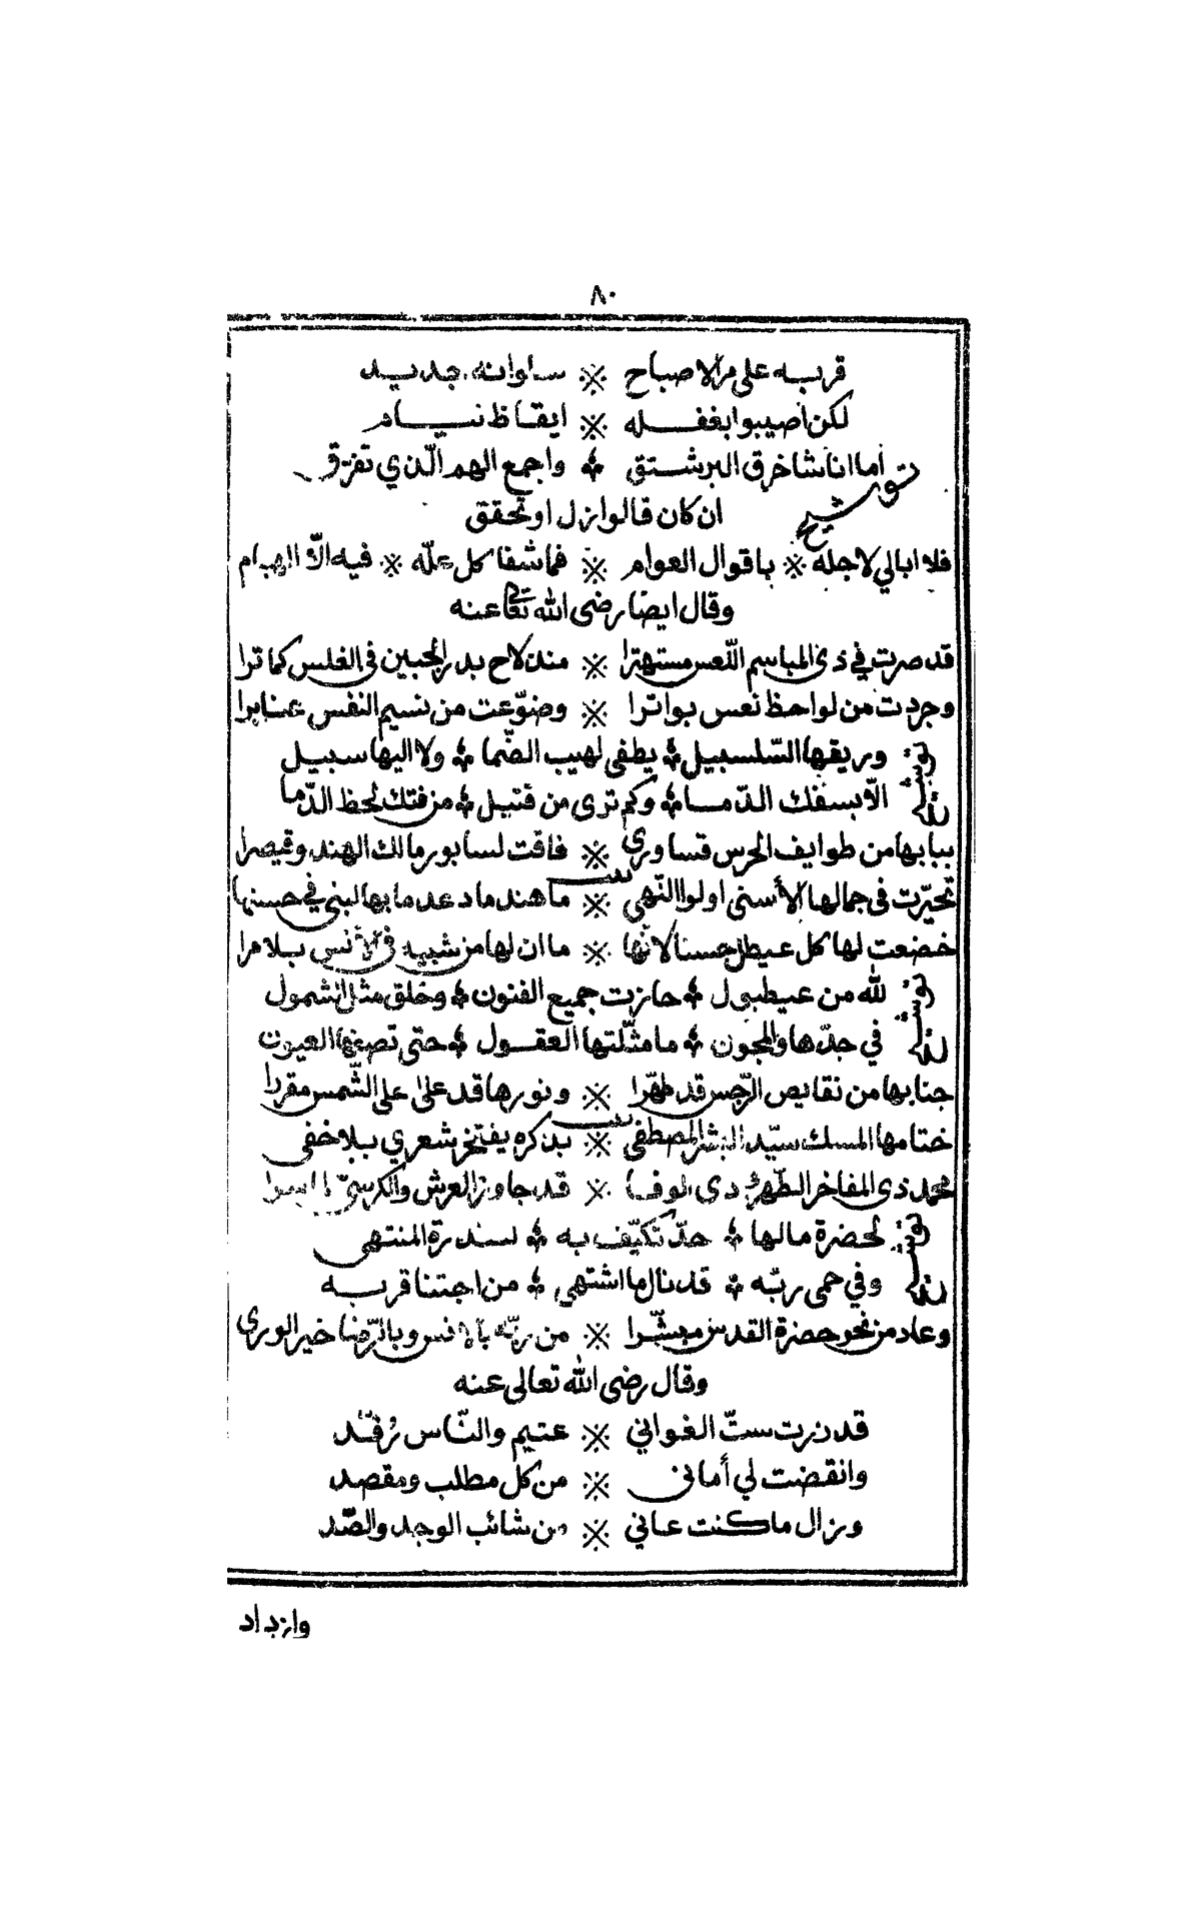 ٨٠
قربه على مر الاصباح ※ سلوانه جديد
لكن اصيبوا بغفله ※ ايقاظ نيام
توشيح اما انا نشا خرق البرشتق ؞ واجمع الهم الّذي تفرّق
ان كان قالوا زل او تحقق
فلا ابالي لاجله ※ باقوال العوام ※ فما شفا كل علّه ※ فيه الّا الهيام
وقال ايضا رضى الله تعالى عنه
قد صرت في ذى المباسم اللّعس مستهترا ※ منذ لاح بدر الجبين فى الغلس كما ترا
وجردت من لواحظ نعس بواترا ※ وضوّعت من نسيم النفس عنابرا
توشيح وريقها السّلسبيل ؞ يطفى لهيب الضّما ؞ ولا اليها سبيل
الّا بسفك الدّما ؞ وكم ترى من قتيل ؞ من فتك لحظ الدّما
ببابها من طوايف الحرس قساورى ※ فاقت لسابور مالك الهند وقيصرا
تحيّرت فى جمالها الأسنى اولوا النّهى ※ ما هند ما دعد ما بها لبنى في حسنها
خضعت لها كل عيطل حسنا لانّها ※ ما ان لها من شبيه فى الأنس بلا مرا
توشيح لله من عيطبول ؞ حازت جميع الفنون ؞ وخلق مثل الشمول
في جدّها والمجون ؞ ما مثّلتها العقول ؞ حتى تصفها العيون
جنابها من نقايص الرّجس قد طهّرا ※ ونورها قد على على الشّمس مقررا
ختامها المسك سيّد البشر المصطفى ※ بذكره يفتخر شعري بلا خفى
محمد ذى المفاخر الطّهر ذى الوفا ※ قد جاوز العرش والكرسيّ
توشيح لحضرة ما لها ؞ حدّ تكيّف به ؞ لسدرة المنتهى
وفي حمى ربّه ؞ قد نال ما اشتهى ؞ من اجتنا قربه
وعاد من نحو حضرة القدس مبشّرا ※ من ربّه بالانس وبالرّضا خير الورى
وقال رضى الله تعالى عنه
قد زرت ستّ الغواني ※ عتيم والنّاس رُقّد
وانقضت لي أمانى ※ من كل مطلب ومقصد
وزال ما كنت عاني ※ من شائب الوجد والصّد
وازداد